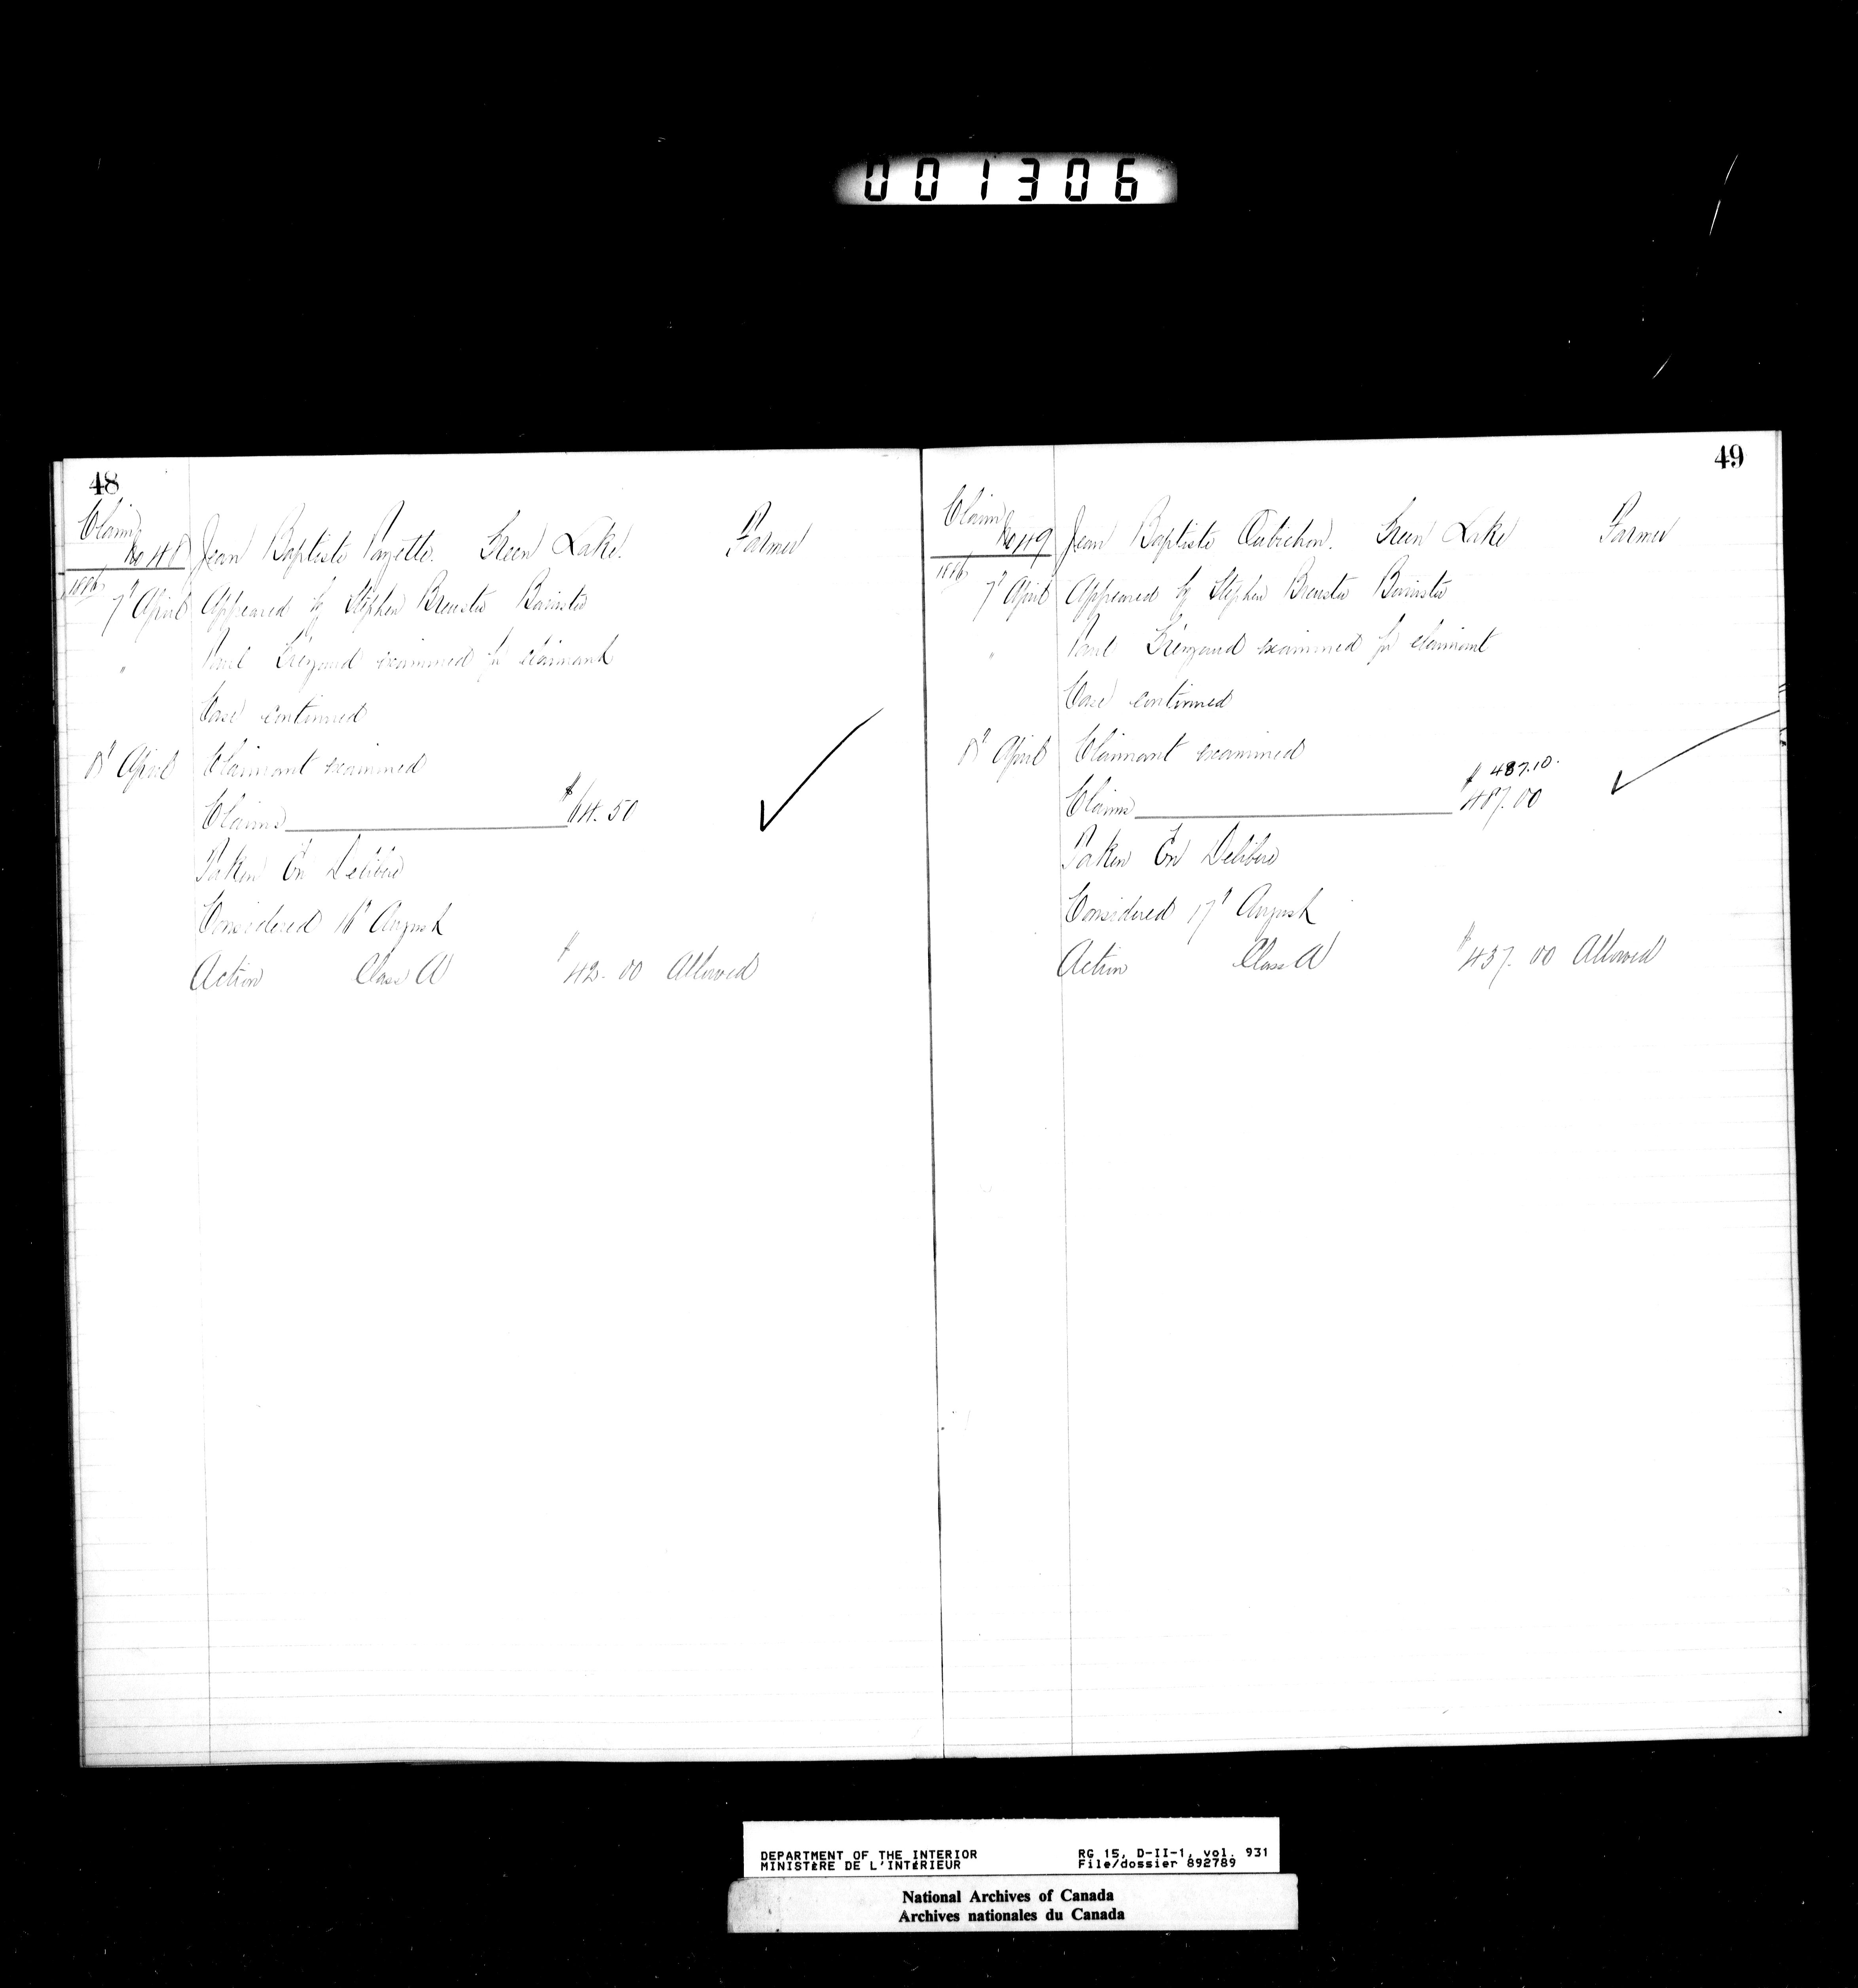 001306
48
Claim No 48 Jean Baptiste Payette. Green Lake. Farmer
1886
7th April Appeared by Stephen Brewster Barrister
" Paul examined for claimant
Case continued
8th April Claimant examined
Claims $64.50
Taken En Délibéré
Considered August
Action Class A $42.00 Allowed
49
Claim No 49 Jean Baptiste Aubichon. Green Lake Farmer
1886
7th April Appeared by Stephen Brewster Barrister
" Paul examined for claimant
Case continued
8th April Claimant examined
$487.10.
Claims $487.00
Taken En Délibéré
Considered 17th August
Action Class A $437.00 Allowed
DEPARTMENT OF THE INTERIOR RG 15, D-II-1, vol. 931
MINISTÈRE DE L'INTÉRIEUR File/dossier 892789
National Archives of Canada
Archives nationales du Canada